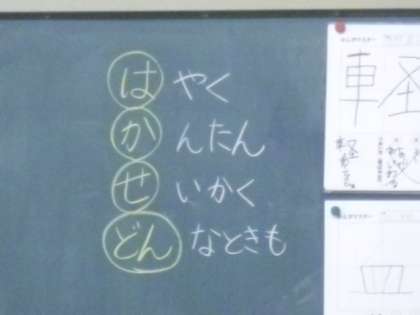 はやく
かんたん
せいかく
どんなときも
車軽
皿